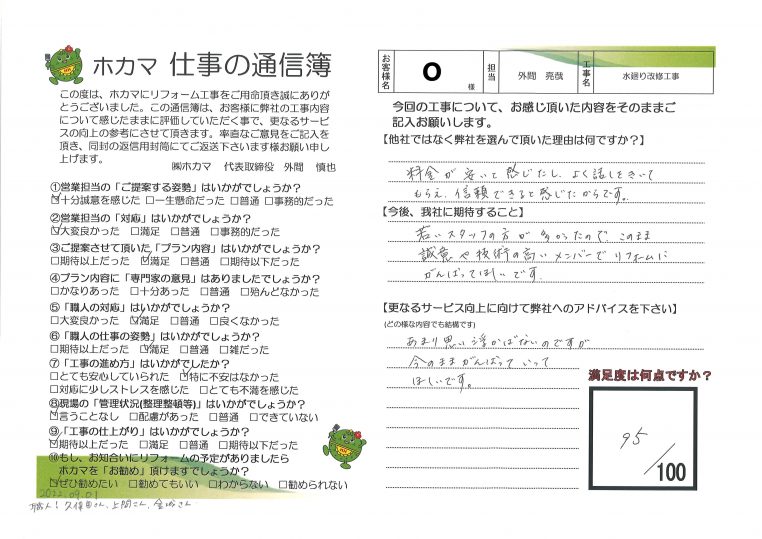 ホカマ 仕事の通信簿
この度は、ホカマにリフォーム工事をご用命頂き誠にありが
とうございました。この通信簿は、お客様に弊社の工事内容
について感じたままに評価していただく事で、更なるサービ
スの向上の参考にさせて頂きます。率直なご意見をご記入を
頂き、同封の返信用封筒にてご返送下さいます様お願い申し
上げます。
㈱ホカマ 代表取締役 外間 慎也
①営業担当の「ご提案する姿勢」はいかがでしょうか?
☑十分誠意を感じた □一生懸命だった □普通 □事務的だった
②営業担当の「対応」はいかがでしょうか?
☑大変良かった □満足 □普通 □事務的だった
③ご提案させて頂いた「プラン内容」はいかがでしょうか?
□期待以上だった ☑満足 □普通 □期待以下だった
④プラン内容に「専門家の意見」はありましたでしょうか?
□かなりあった □十分あった □普通 □殆んどなかった
⑤「職人の対応」はいかがでしょうか?
□大変良かった ☑満足 □普通 □良くなかった
⑥「職人の仕事の姿勢」はいかがでしょうか?
□期待以上だった ☑満足 □普通 □雑だった
⑦「工事の進め方」はいかがでしたでしょうか?
□とても安心していられた ☑特に不安はなかった
□対応に少しストレスを感じた □とても不満を感じた
⑧現場の「管理状況(整理整頓等)」はいかがでしょうか?
☑言うことなし □配慮があった □普通 □できていない
⑨「工事の仕上がり」はいかがでしょうか?
☑期待以上だった □満足 □普通 □期待以下だった
⑩もし、お知合いにリフォームの予定がありましたら
ホカマを「お勧め」頂けますでしょうか?
☑ぜひ勧めたい □勧めてもいい □わからない □勧められない
2022.09.01
職人:久保田さん、上間さん、金城さん
お客様名 O 様 担当 外間 亮哉 工事名 水廻り改修工事
今回の工事について、お感じ頂いた内容をそのままご
記入お願いします。
【他社ではなく弊社を選んで頂いた理由は何ですか?】
料金が安いと感じたし、よく話しをきいて
もらえ、信頼できると感じたからです。
【今後、我社に期待すること】
若いスタッフの方が多かったので、このまま
誠意や技術の高いメンバーでリフォームに
がんばってほしいです。
【更なるサービス向上に向けて弊社へのアドバイスを下さい】
(どの様な内容でも結構です)
あまり思い浮かばないのですが
今のままがんばっていって
ほしいです。
満足度は何点ですか?
95/100